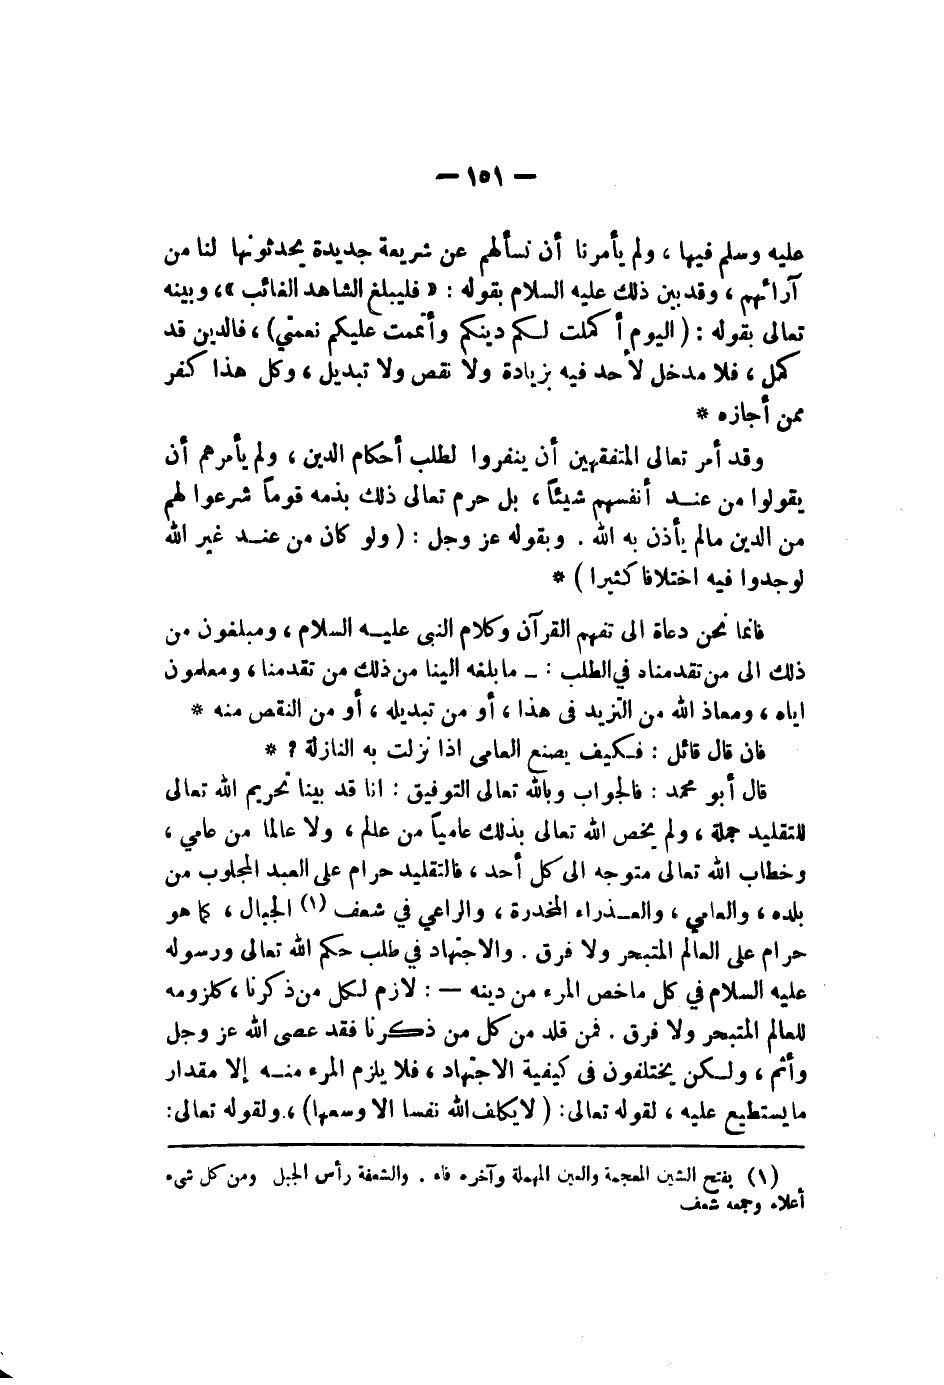 — ١٥١ —
عليه وسلم فيها ، ولم يأمرنا أن نسألهم عن شريعة جديدة يحدثونها لنا من
آرائهم ، وقد بين ذلك عليه السلام بقوله : « فليبلغ الشاهد الغائب »، وبينه
تعالى بقوله : ( اليوم أكملت لكم دينكم وأتممت عليكم نعمتي) ، فالدين قد
كمل ، فلا مدخل لأحد فيه بزيادة ولا نقص ولا تبديل ، وكل هذا كفر
ممن أجازه *
وقد أمر تعالى المتفقهين أن ينفروا لطلب أحكام الدين ، ولم يأمرهم أن
يقولوا من عند أنفسهم شيئاً ، بل حرم تعالى ذلك بذمه قوماً شرعوا لهم
من الدين مالم يأذن به الله . وبقوله عز وجل : ( ولو كان من عند غير الله
لوجدوا فيه اختلافا كثيرا ) *
فانما نحن دعاة الى تفهم القرآن وكلام النبى عليه السلام ، ومبلغون من
ذلك الى من تقدمناه في الطلب : ـ مابلغه الينا من ذلك من تقدمنا ، ومعلمون
اياه ، ومعاذ الله من التزيد فى هذا ، أو من تبديله ، أو من النقص منه *
فان قال قائل : فكيف يصنع العامى اذا نزلت به النازلة ؟ *
قال أبو محمد : فالجواب وبالله تعالى التوفيق : انا قد بينا تحريم الله تعالى
للتقليد جملة ، ولم يخص الله تعالى بذلك عامياً من عالم ، ولا عالما من عامي ،
وخطاب الله تعالى متوجه الى كل أحد ، فالتقليد حرام على العبد المجلوب من
بلده ، والعامي ، والعذراء المخدرة ، والراعي في شعف (١) الجبال ، كما هو
حرام على العالم المتبحر ولا فرق . والاجتهاد في طلب حكم الله تعالى ورسوله
عليه السلام في كل ماخص المرء من دينه — : لازم لكل من ذكرنا ، كلزومه
للعالم المتبحر ولا فرق . فمن قلد من كل من ذكرنا فقد عصى الله عز وجل
وأثم ، ولكن يختلفون فى كيفية الاجتهاد ، فلا يلزم المرء منه إلا مقدار
مايستطيع عليه ، لقوله تعالى: ( لايكلف الله نفسا الا وسعها) ، ولقوله تعالى:
(١) بفتح الشين المعجمة والعين المهملة وآخره فاء . والشعفة رأس الجبل ومن كل شىء
أعلاه وجمعه شعف